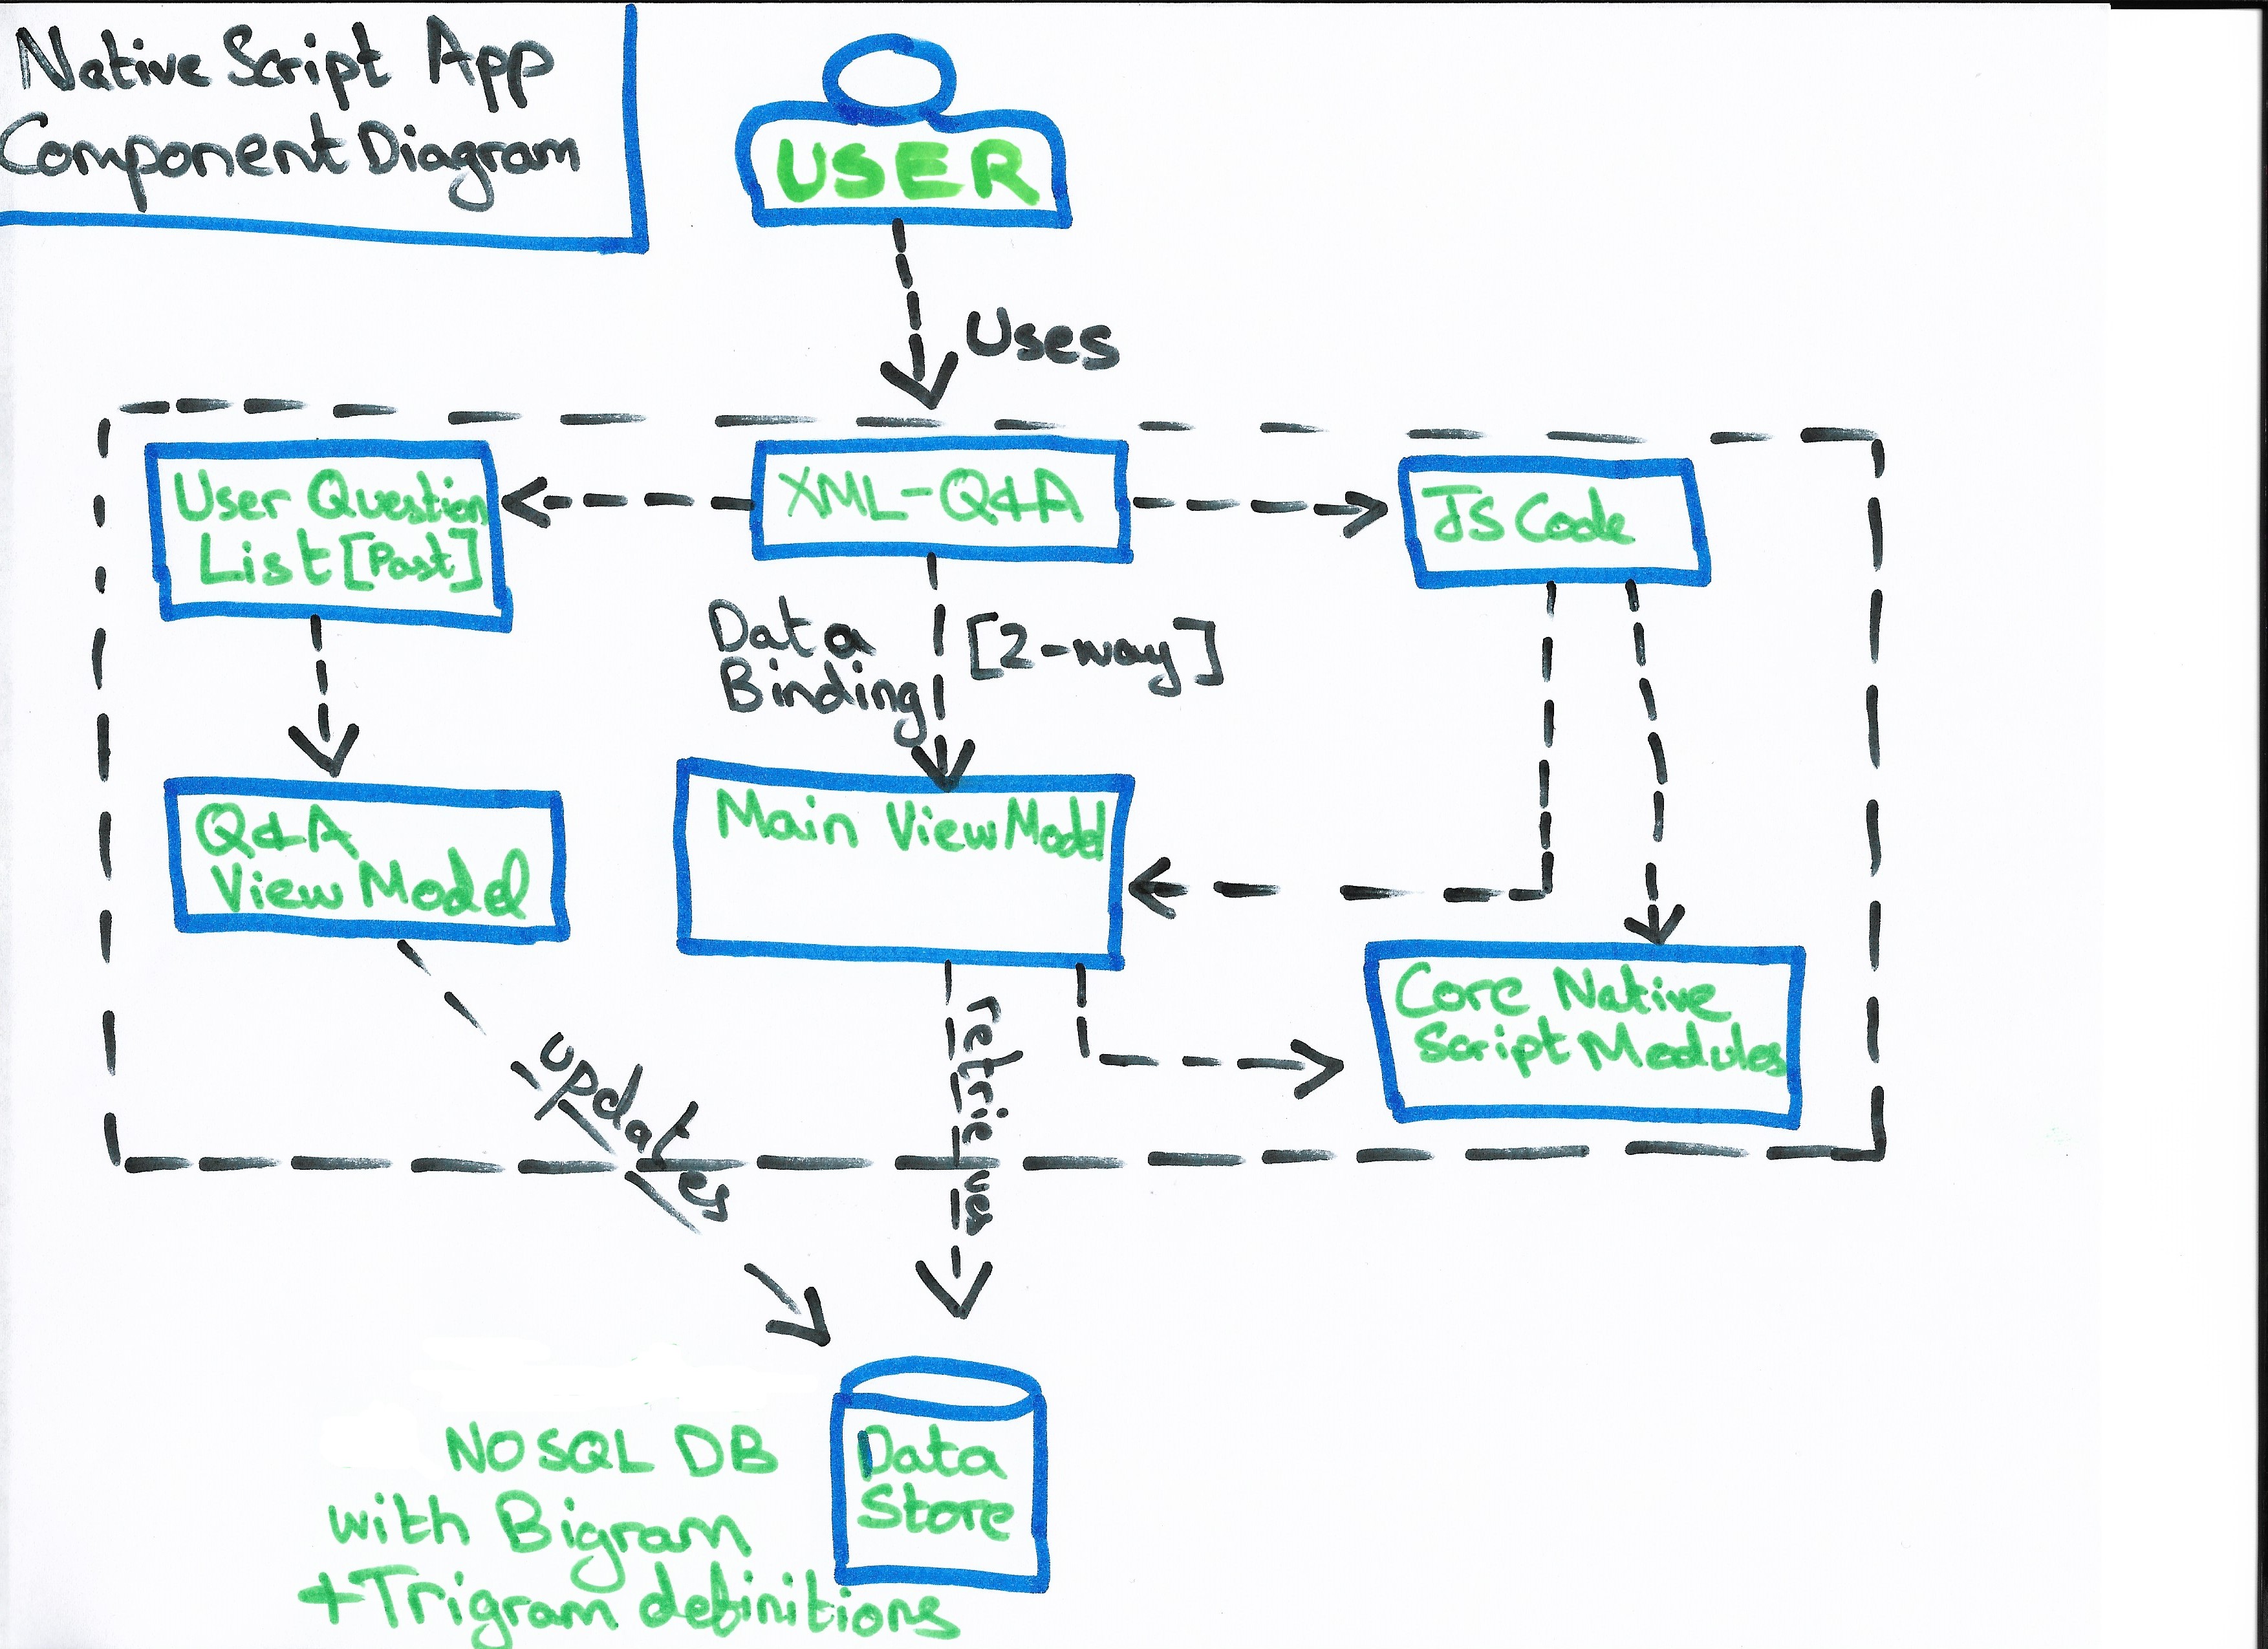 Native Script App
Component Diagram
USER
Uses
User Question
List [Past]
XML-Q&A
JS Code
Data
Binding
[2-way]
Q&A
View Model
Main View Model
Core Native
Script Modules
updates
retrieves
Data
Store
NOSQL DB
with Bigram
+Trigram definitions